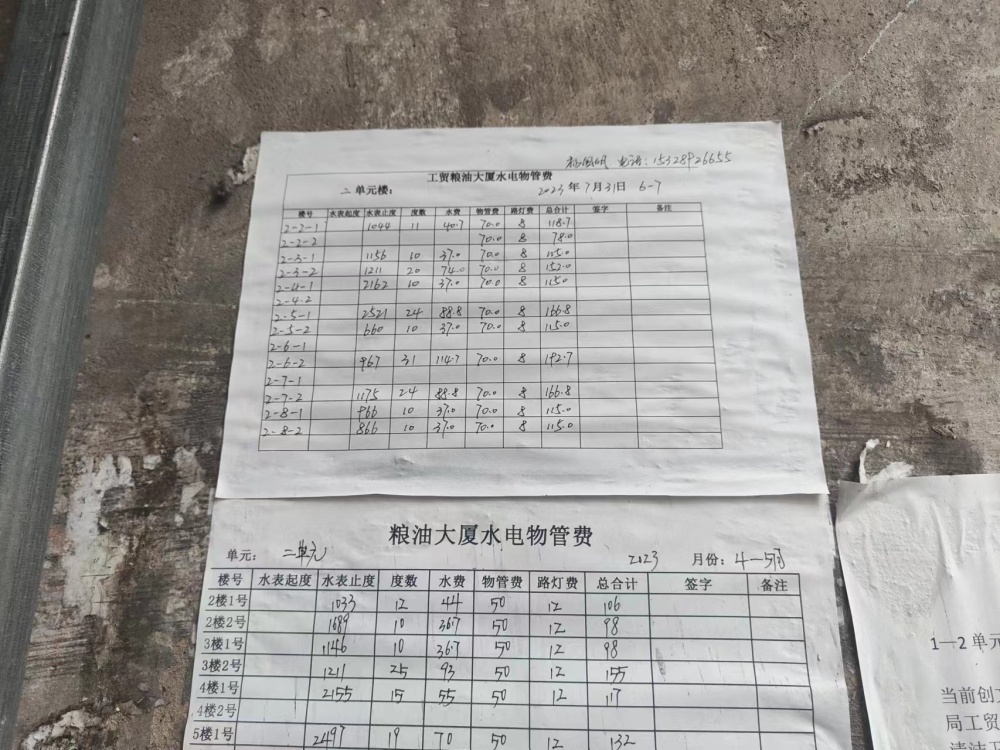 电话：15328926655
工贸粮油大厦水电物管费
二单元楼： 2023年7月31日 6-7
楼号 水表起度 水表止度 度数 水费 物管费 路灯费 总合计 签字 备注
2-2-1 1044 11 40.7 70.0 8 118.7
2-2-2 70.0 8 78.0
2-3-1 1156 10 37.0 70.0 8 115.0
2-3-2 1211 20 74.0 70.0 8 152.0
2-4-1 2162 10 37.0 70.0 8 115.0
2-4-2
2-5-1 2521 24 88.8 70.0 8 166.8
2-5-2 660 10 37.0 70.0 8 115.0
2-6-1
2-6-2 967 31 114.7 70.0 8 192.7
2-7-1
2-7-2 1175 24 88.8 70.0 8 166.8
2-8-1 966 10 37.0 70.0 8 115.0
2-8-2 866 10 37.0 70.0 8 115.0
粮油大厦水电物管费
单元： 二单元 2023 月份：4—5月
楼号 水表起度 水表止度 度数 水费 物管费 路灯费 总合计 签字 备注
2楼1号 1033 12 44 50 12 106
2楼2号 1689 10 36.7 50 12 98
3楼1号 1146 10 36.7 50 12 98
3楼2号 1211 25 93 50 12 155
4楼1号 2155 15 55 50 12 117
4楼2号
5楼1号 2497 19 70 50 12 132
1—2单元
当前创文
局工贸